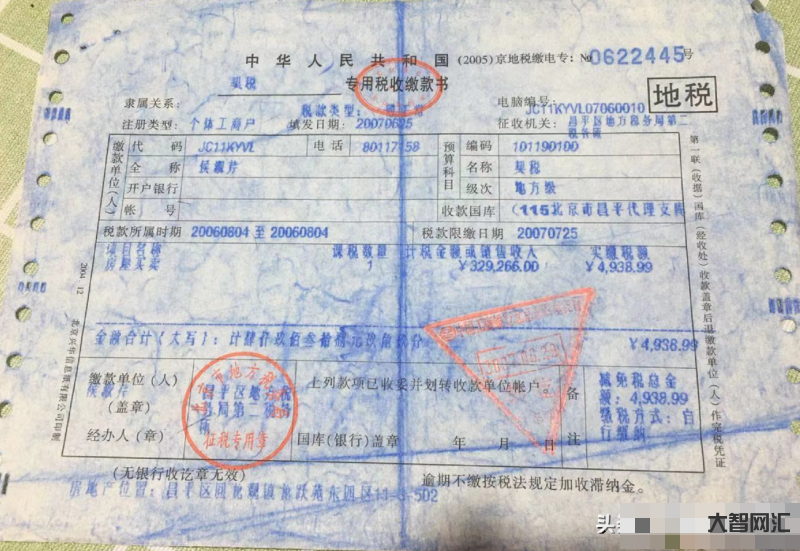 中华人民共和国 (2005)京地税缴电专:№0622445号
契税 专用税收缴款书
地税
隶属关系: 税款类型: 电脑编号: JC11KYVL07060010
注册类型: 个体工商户 填发日期: 20070625 征收机关: 昌平区地方税务局第二税务所
缴款单位(人) 代码 JC11KYVL 电话 预算科目 编码 101190100
全称 名称 契税
开户银行 级次 地方级
帐号 收款国库 (115北京市昌平代理支库
税款所属时期 20060804 至 20060804 税款限缴日期 20070725
项目名称 课税数量 计税金额或销售收入 实缴税额
房屋买卖 1 ¥329,266.00 ¥4,938.99
金额合计(大写): ¥4,938.99
缴款单位(人)
(盖章)
经办人(章)
昌平区地方税务局第二税务所
征税专用章
上列款项已收妥并划转收款单位帐户。
国库(银行)盖章 年 月 日
备注
减免税总金额: 4,938.99
缴税方式: 自行缴纳
(无银行收讫章无效) 逾期不缴按税法规定加收滞纳金。
房地产位置: 昌平区回龙观镇 东四区11-3-502
第一联(收据)国库(经收处)收款盖章后退缴款单位(人)作完税凭证
2004 12
头条
大智网汇